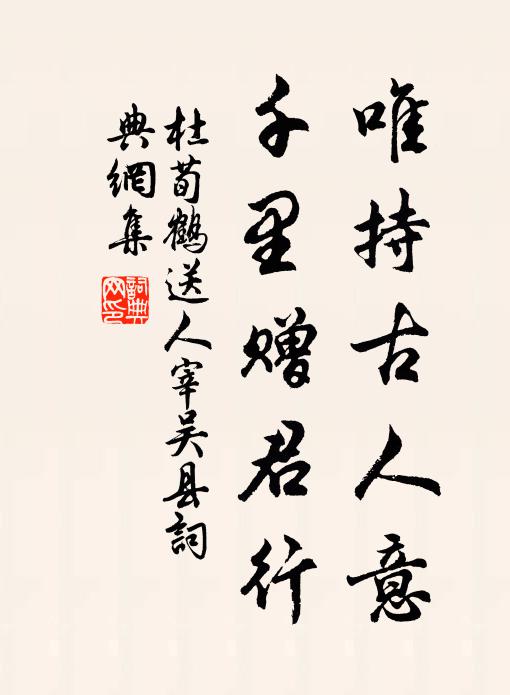 唯持古人意
千里赠君行
杜荀鶴送人宰吴县詞
典網集
詞典网印